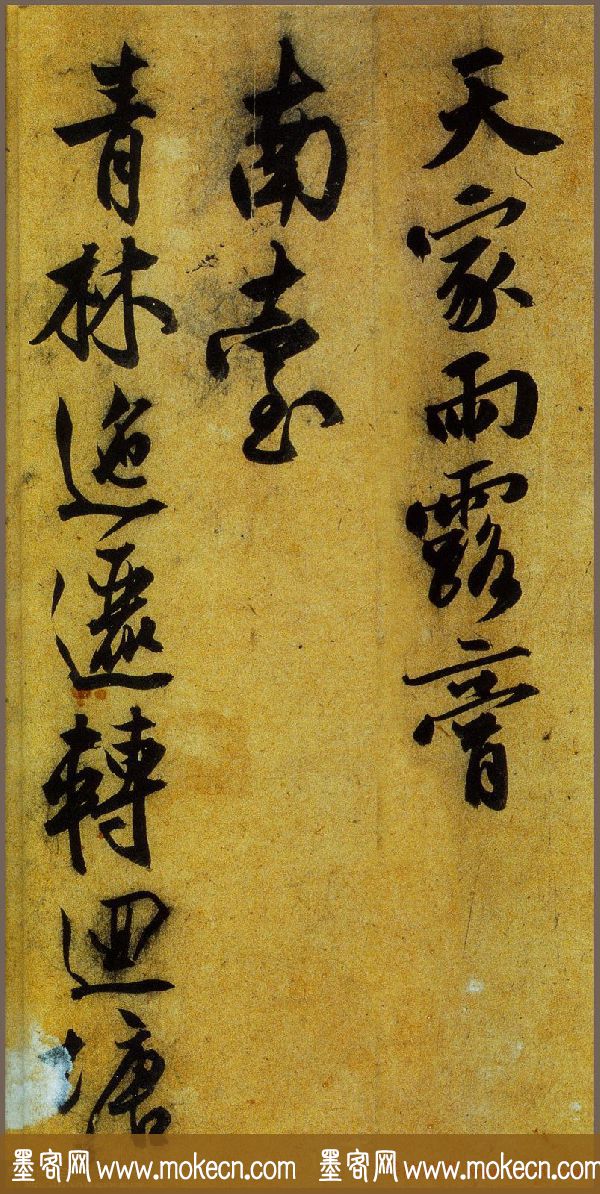 天家雨露膏
南臺
青林迤邐轉迴塘
墨客网 www.mokecn.com 墨客网 www.mokecn.com